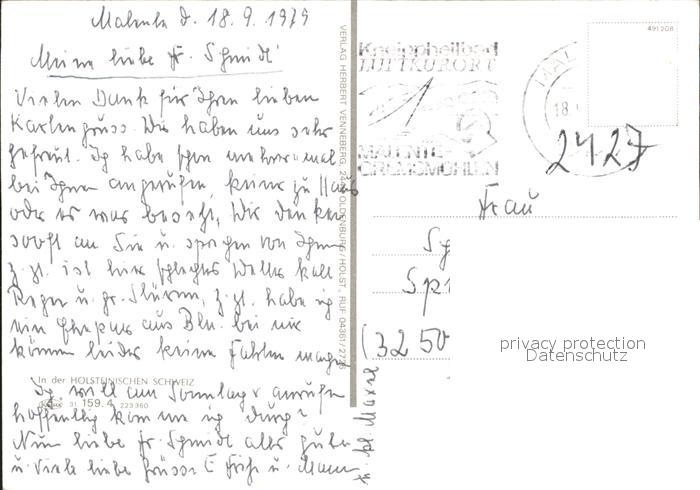 Malente d. 18.9.1979
Meine liebe Fr. Schmidt!
Vielen Dank für Ihren lieben
Kartengruss. Wir haben uns sehr
gefreut. Ich habe schon mehrere mal
bei Ihnen angerufen, keiner zu Haus
oder es war besetzt, Wir denken
sooft an Sie u. sprechen von Ihnen
z.Zt. ist hier schlechtes Wetter kalt
Regen u. gr. Stürme, z.Zt. habe ich
ein Ehepaar aus Bln. bei mir
können leider keine Fahrten machen
In der HOLSTEINISCHEN SCHWEIZ
31 159.4 223360
Ich will am Sonntag anrufen
hoffentlich komme ich durch?
Nun liebe Fr. Schmidt alles gute
u. viele liebe Grüsse E u. Mann
VERLAG HERBERT VENNEBERG, OLDENBURG/HOLST., RUF 04361/2725
Kneippheilbad
LUFTKURORT
MALENTE-
GREMSMÜHLEN
MAL
18.
491208
2427
Frau
Sch
Spr
(3250
privacy protection
Datenschutz